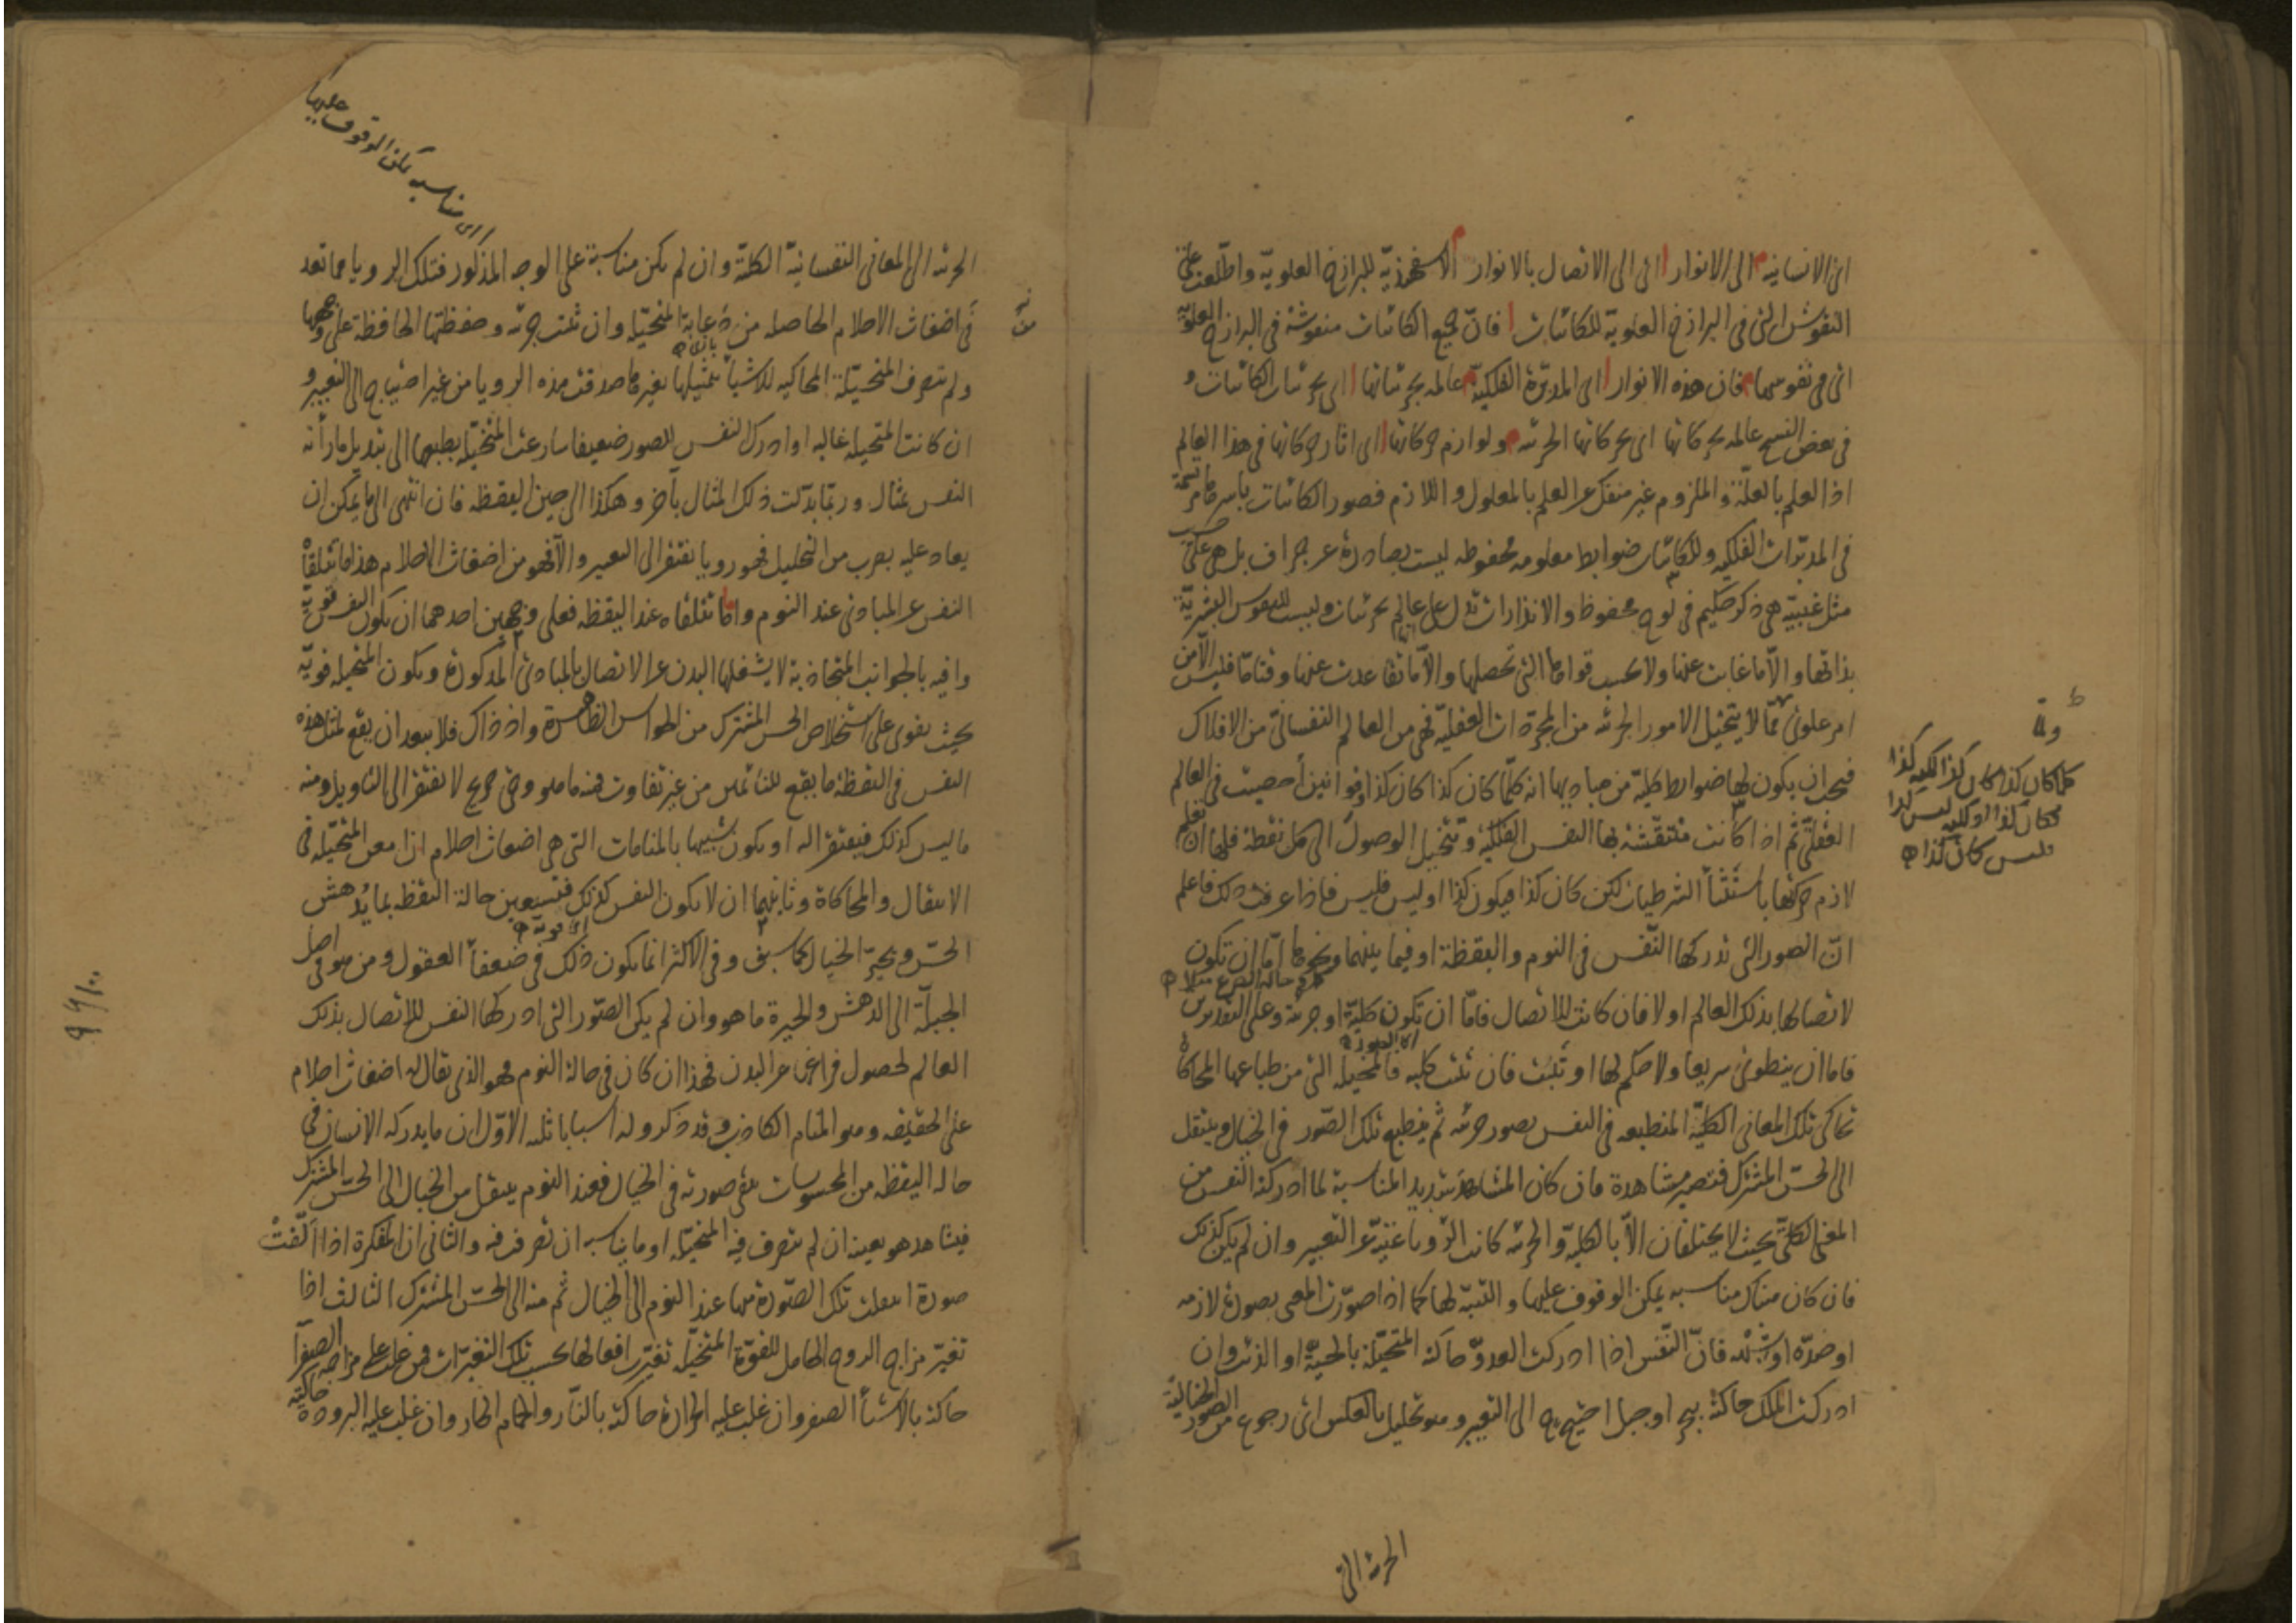 اى الانسانية الى الانوار اى الى الاتصال بالانوار الاسفهبذيّة للبرازخ العلويّة واطّلعت على
النقوش التى فى البرازخ العلوية للكائنات فانّ جميع الكائنات منقوشة فى البرازخ العلويّة
اى فى نفوسها فان هذه الانوار اى المدبّرة الفلكيّة عالمه بجزئياتها اى بجزئيات الكائنات و
فى بعض النسخ عالمه بحركاتها اى بحركاتها الجزئيه ولوازم حركاتها اى اثار حركاتها فى هذا العالم
اذ العلم بالعلّة والملزوم غير منفك عن العلم بالمعلول واللازم فصور الكائنات باسرها مرتسمة
فى المدبّرات الفلكيه وللكائنات ضوابط معلومه محفوظه ليست بصادرة عن جزاف بل هى على حسب
مثل غيبيّة هى ذكر حكيم فى لوح محفوظ والانذارات تدل على عالم بجزئيات وليست للنفوس البشريّة
بذاتها والّا ما غابت عنها ولا بحسب قواها التى تحصلها والّا ما تقاعدت عنها وقتا ما فليس الّا من
امر علوىّ ممّا لا يتخيل الامور الجزئيه من المجرّدات العقليّة فهى من العالم النفسانى من الافلاك
فيجب ان يكون لها ضوابط كليّة من مباديها انه كلّما كان كذا كان كذا وقوانين أحصيت فى العالم
العقلىّ ثم اذا كانت منتقشة بها النفس الفلكيّة وتتخيل الوصول الى كل نقطة فلها ان تعلم
لازم حركتها باستثناء الشرطيات لكن كان كذا فيكون كذا او ليس فليس فاذا عرفت ذلك فاعلم
انّ الصور التى تدركها النّفس فى النوم واليقظة او فيما بينهما ونحوها امّا ان تكون
كما فى حالة الصرع مثلا
لاتصالها بذلك العالم او لا فان كانت للاتصال فامّا ان تكون كليّة او جزئية وعلى التقديرين
اى الصورة
فاما ان ينطوى سريعا ولا حكم لها او تثبت فان تثبت كليه فالمتخيله التى من طباعها المحاكاة
تحاكى تلك المعانى الكليّة المنطبعه فى النفس بصور جزئيه ثم ينطبع تلك الصّور فى الخيال وينتقل
الى الحسّ المشترك فتصير مشاهدة فان كان المشاهد شديد المناسبة لما ادركته النفس من
المعنى الكلىّ بحيث لا يختلفان الّا بالكليّة والجزئيه كانت الرّويا غنيّة عن التعبير وان لم يكن كذلك
فان كان هناك مناسبه يمكن الوقوف عليها والتنبّه لها كما اذا صوّرت المعنى بصورة لازمه
او ضدّه او شبهه فانّ النّفس اذا ادركت العدوّ حاكته المتخيّلة بالحيّة او الذئب وان
ادركت الملك حاكته ببحر او جبل احتيج الى التعبير وهو تحليل بالعكس اى رجوع من الصور الخياليّة
الجزئيه الى
كلما كان كذا كان كذا
فكان كذا او ليس كذا
فليس كان كذا
اى مناسبه يمكن الوقوف عليها
الجزئيه الى المعانى النفسانيّة الكليّة وان لم يكن مناسبة على الوجه المذكور فتلك الرويا مما تعد
فى اضغاث الاحلام الحاصله من دعابة المتخيّله وان تثبت جزئيه وحفظتها الحافظة على وجهها
ولم تتصرف المتخيّلة المحاكيه للاشياء بتمثيلها بغيرها صدقت هذه الرويا من غير احتياج الى التعبير و
ان كانت المتخيله غالبه او ادراك النفس للصور ضعيفا سارعت المتخيّله بطبعها الى تبديل ما رأته
النفس بمثال وربّما بدّلت ذلك المثال بآخر وهكذا الى حين اليقظه فان انتهى الى ما يمكن ان
يعاد عليه بضرب من التحليل فهو رويا يفتقر الى التعبير والّا فهو من اضغاث الاحلام هذا ما تتلقاه
النفس عن المبادى عند النوم وامّا ما تتلقاه عند اليقظه فعلى وجهين احدهما ان يكون النفس قويّة
وافيه بالجوانب المتجاذبة لا يشغلها البدن عن الاتصال بالمبادى المذكورة ويكون المتخيله قويّة
بحيث يقوى على استخلاص الحس المشترك من الحواس الظاهرة واذ ذاك فلا يبعد ان يقع لمثل هذه
النفس فى اليقظة ما يقع للنائمين من غير تفاوت فمنه ما هو وحى صريح لا يفتقر الى التاويل ومنه
ما ليس كذلك فيفتقر اليه او يكون شبيها بالمنامات التى هى اضغاث احلام ان امعن المتخيّله فى
الانتقال والمحاكاة وثانيهما ان لا يكون النفس كذلك فتستعين حالة اليقظة بما يُدهش
اى قويّة
الحسّ ويحيّر الخيال كما سبق وفى الاكثر انما يكون ذلك فى ضعفاء العقول ومن هو فى اصل
الجبلّة الى الدهش والحيرة ما هو وان لم يكن الصّور التى ادركها النفس للاتصال بذلك
العالم لحصول فراغ عن البدن فهذا ان كان فى حالة النوم فهو الذى يقال له اضغاث احلام
على الحقيقه وهو المنام الكاذب وقد ذكروا له اسبابا ثلثه الاوّل ان ما يدركه الانسان فى
حاله اليقظه من المحسوسات يبقى صورته فى الخيال فعند النوم ينتقل من الخيال الى الحسّ المشترك
فيشاهد هو بعينه ان لم يتصرف فيه المتخيّله او ما يناسبه ان تصرفت فيه والثانى ان المفكرة اذا الّفتْ
صورة انتقلت تلك الصّورة منها عند النوم الى الخيال ثم منه الى الحسّ المشترك الثالث اذا
تغيّر مزاج الروح الحامل للقوّة المتخيّله تغيّرت افعالها بحسب تلك التغيّرات فمن غلب على مزاجه الصفرا
حاكته بالاشياء الصفر وان غلب عليه الحرارة حاكته بالنّار والحمام الحار وان غلب عليه البرودة حاكته